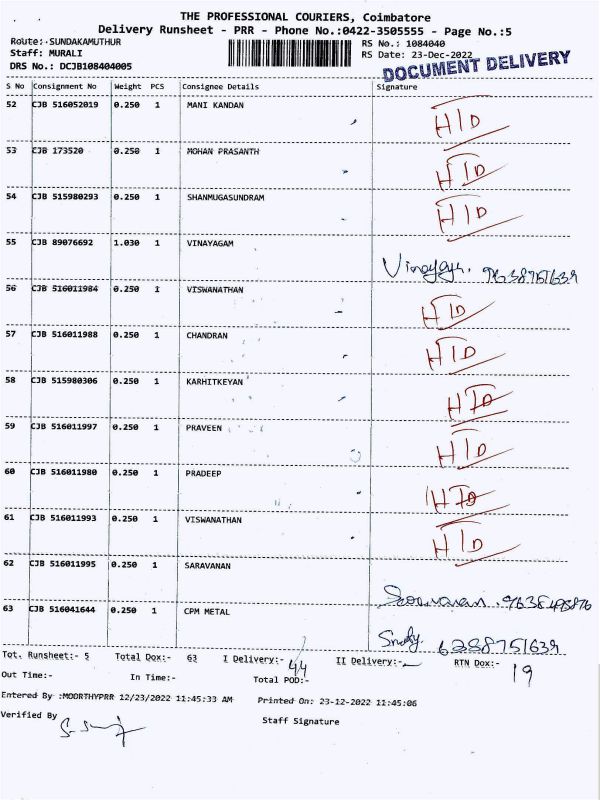 THE PROFESSIONAL COURIERS, Coimbatore
Delivery Runsheet - PRR - Phone No.:0422-3505555 - Page No.:5
Route:- SUNDAKAMUTHUR RS No.: 1084040
Staff: MURALI RS Date: 23-Dec-2022
DRS No.: DCJB108404005 DOCUMENT DELIVERY
S No Consignment No Weight PCS Consignee Details Signature
52 CJB 516052019 0.250 1 MANI KANDAN HID
53 CJB 173520 0.250 1 MOHAN PRASANTH HID
54 CJB 515980293 0.250 1 SHANMUGASUNDRAM HID
55 CJB 89076692 1.030 1 VINAYAGAM
56 CJB 516011984 0.250 1 VISWANATHAN HID
57 CJB 516011988 0.250 1 CHANDRAN HID
58 CJB 515980306 0.250 1 KARHITKEYAN HID
59 CJB 516011997 0.250 1 PRAVEEN HID
60 CJB 516011980 0.250 1 PRADEEP HID
61 CJB 516011993 0.250 1 VISWANATHAN HID
62 CJB 516011995 0.250 1 SARAVANAN
63 CJB 516041644 0.250 1 CPM METAL
Tot. Runsheet:- 5 Total Dox:- 63 I Delivery:- 44 II Delivery:- RTN Dox:- 19
Out Time:- In Time:- Total POD:-
Entered By :MOORTHYPRR 12/23/2022 11:45:33 AM Printed On: 23-12-2022 11:45:06
Verified By Staff Signature